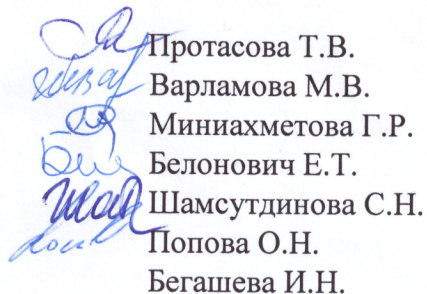 Протасова Т.В.
Варламова М.В.
Миниахметова Г.Р.
Белонович Е.Т.
Шамсутдинова С.Н.
Попова О.Н.
Бегашева И.Н.